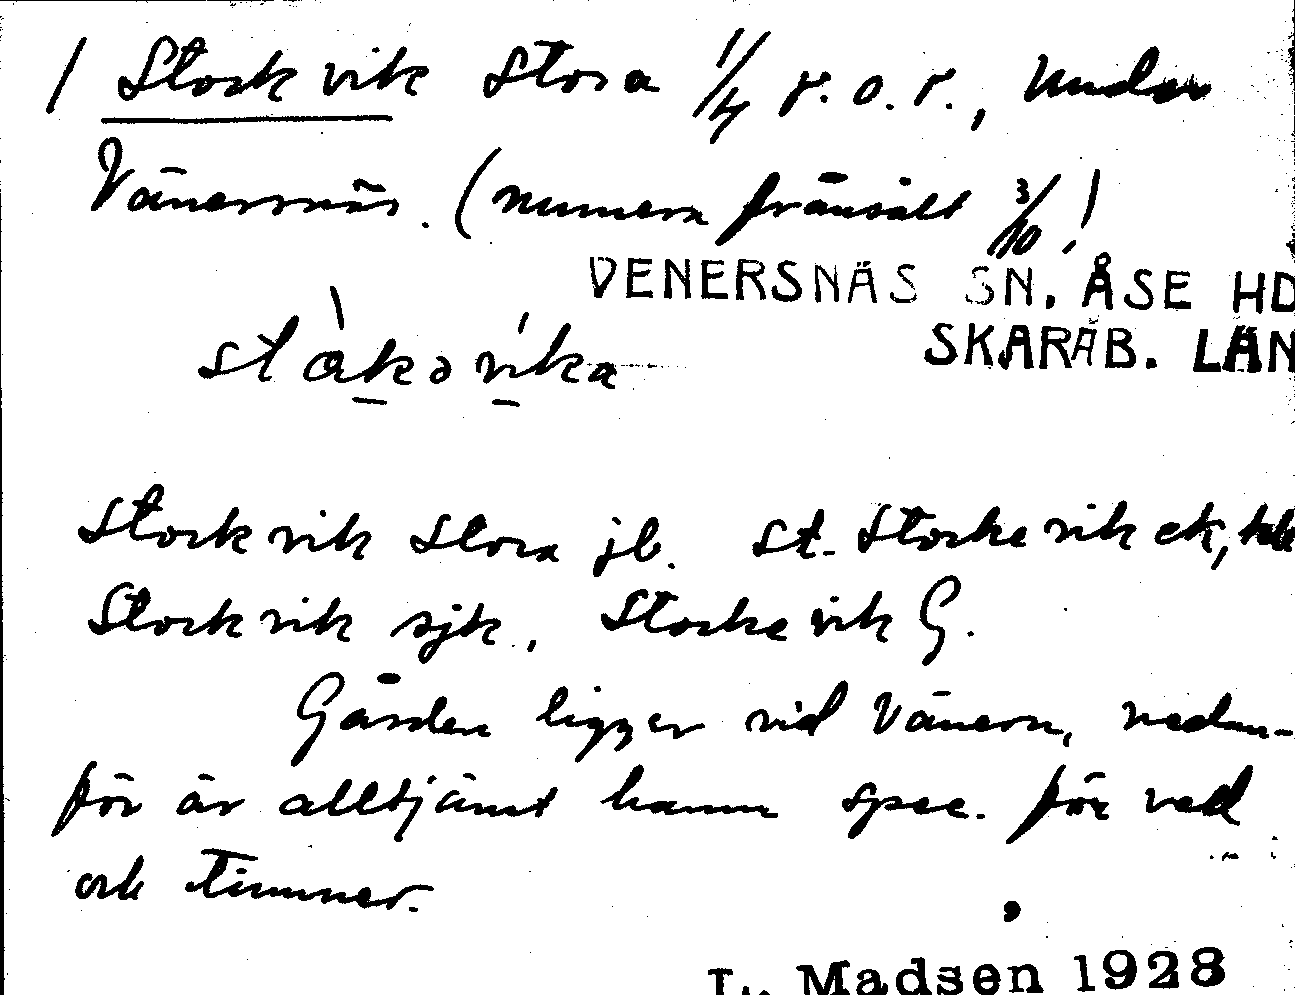 / Stockvik Stora 1/4 r. o. r., under
Vänersnäs. (numera frånsålt 3/10!
VENERSNÄS SN. ÅSE HD
SKARAB. LÄN
ståkəvika
Stockvik Stora jb. St. Stockevik ek,
Stockvik sjk., Stockevik G.
Gården ligger vid Vänern, nedan-
för är alltjämt hamn spec. för ved
och timmer.
L. Madsen 1928